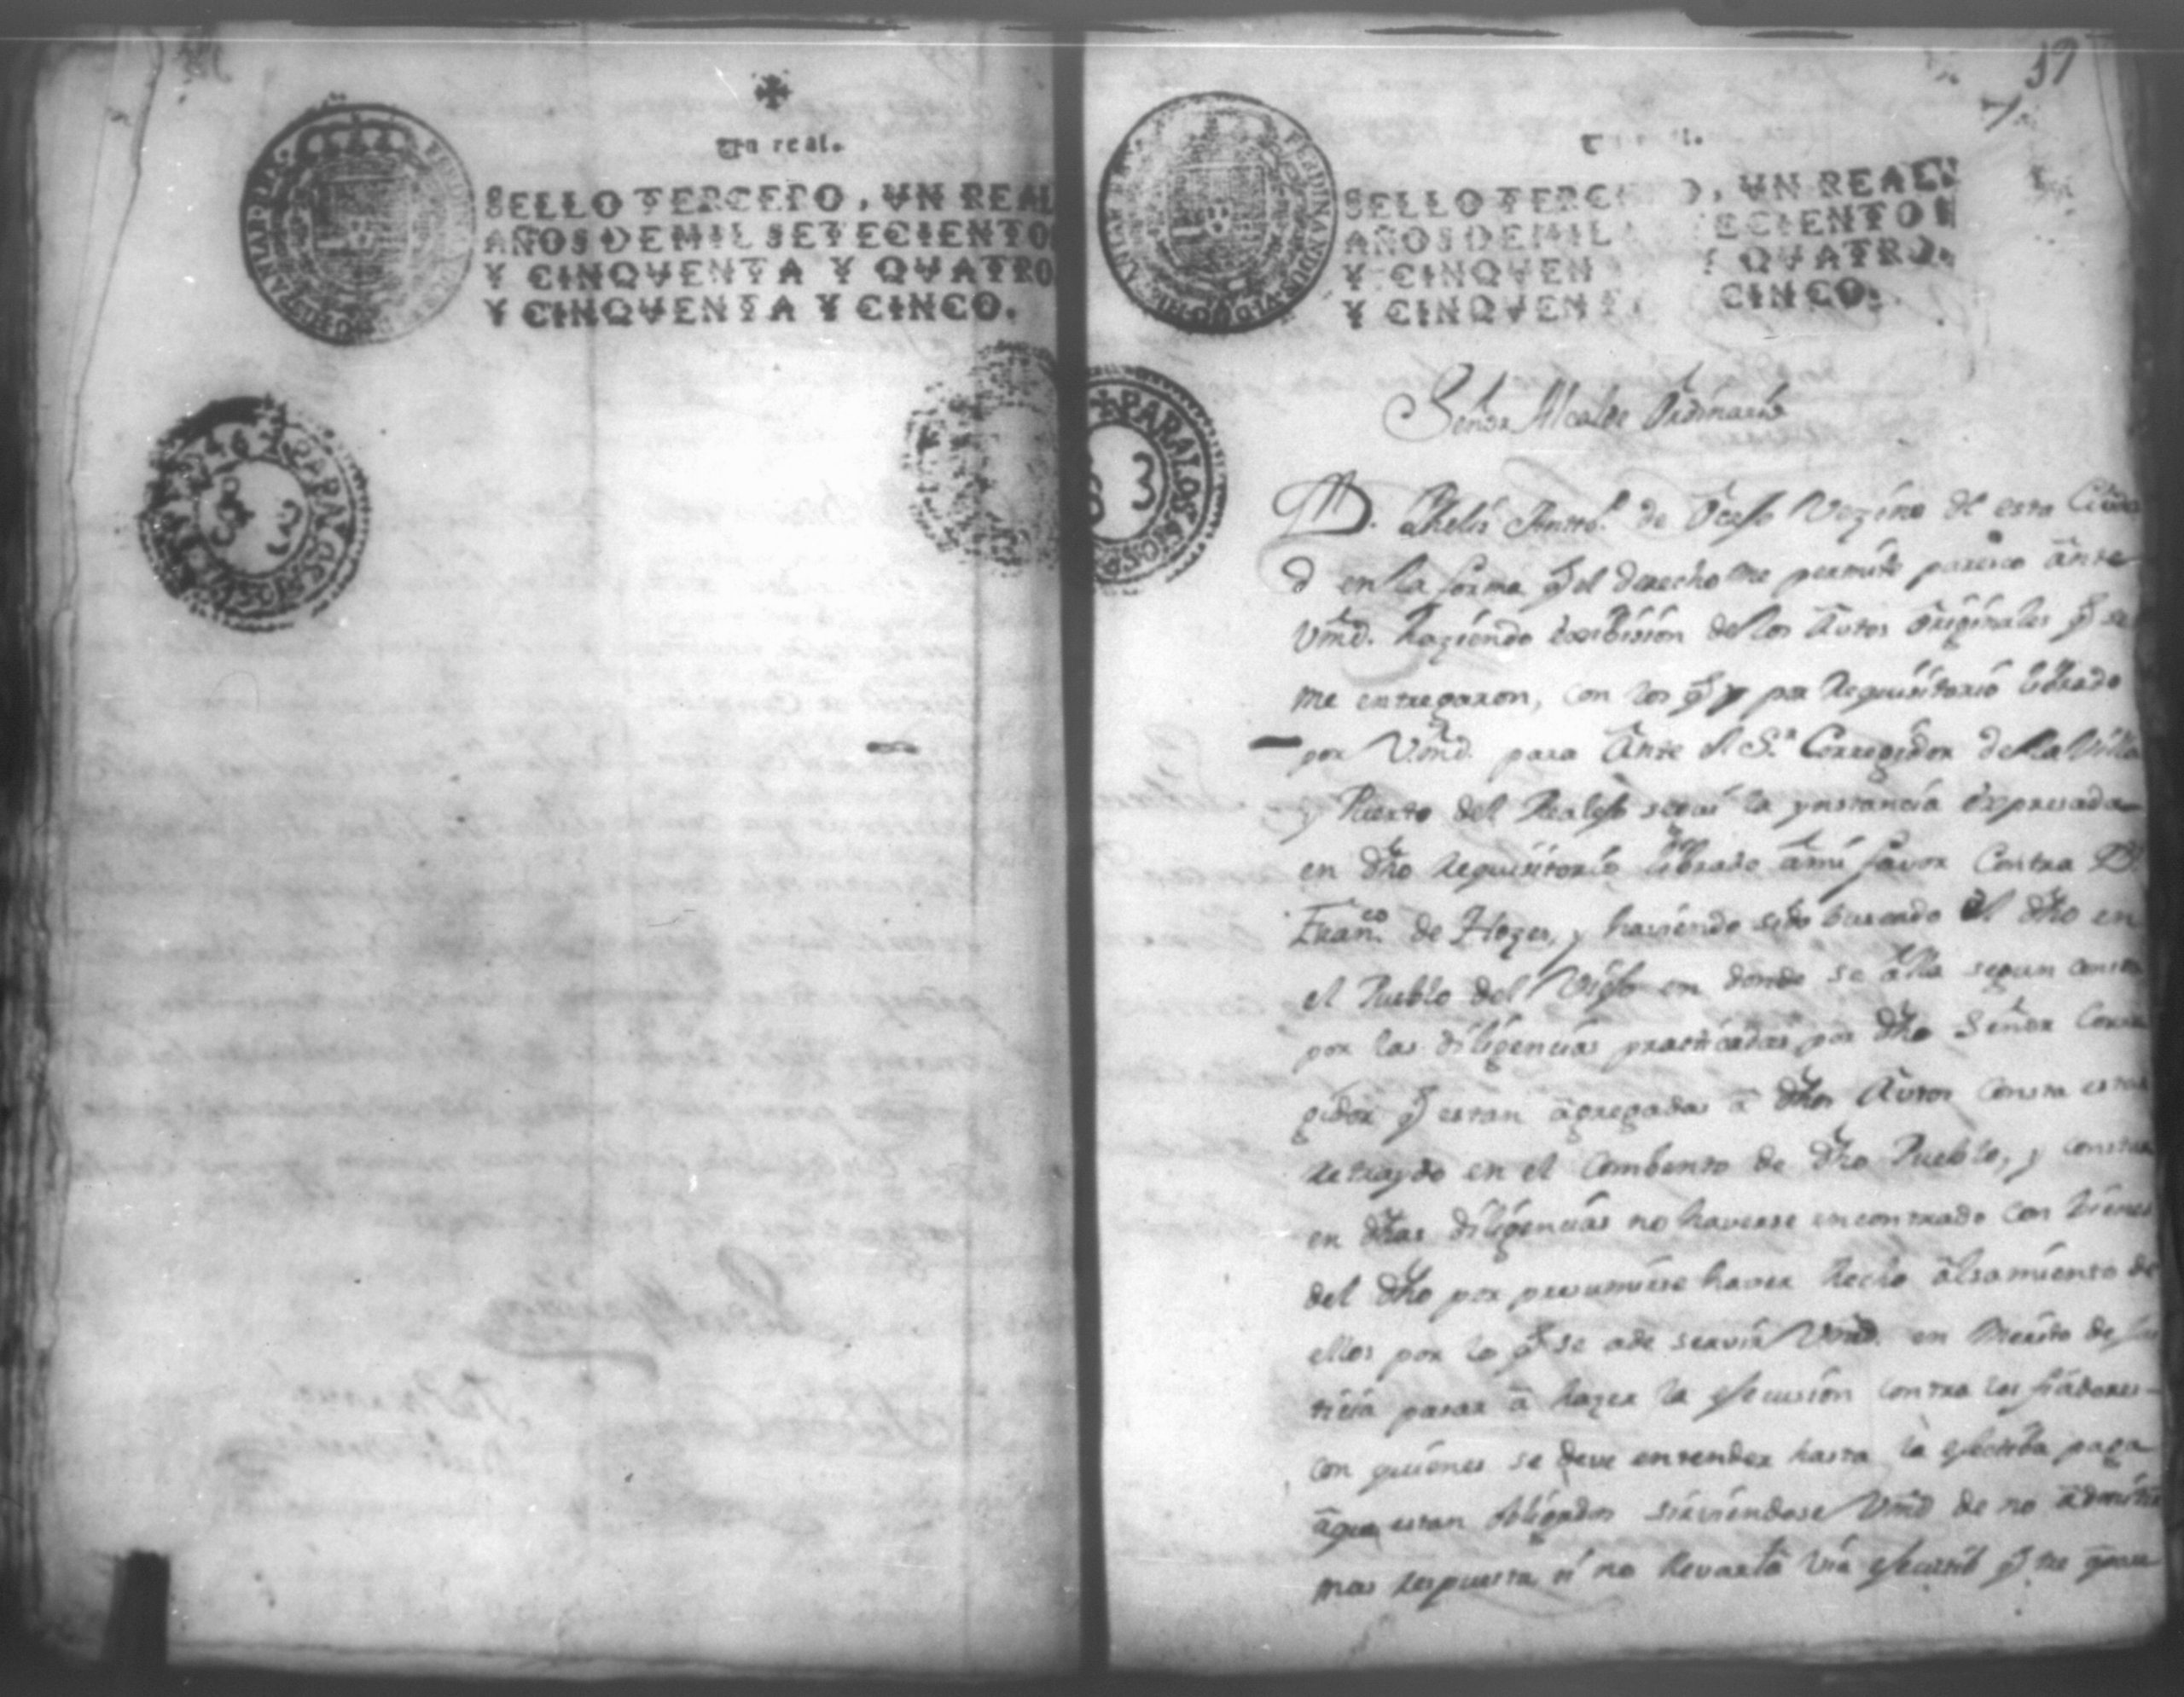 Un real.
SELLO TERCERO, VN REAL
AÑOS DE MIL SETECIENTO
Y CINQVENTA Y QVATRO
Y CINQVENTA Y CINCO.
17
SELLO TERC O, VN REAL
AÑOS DE MIL ECIENTOS
Y CINQVEN QVATRO,
Y CINQVENT CINCO.
+PARALOS
63
Señor Alcalde Ordinario
D. Phelis Antto. de Vezino de esta Ciuda
d en la forma q̃ el derecho me permite paresco ante
Vmd. haziendo exsibision de los Autos Originales q̃ se
me entregaron, con los q̃ y por Requisitorio librado
por Vmd. para Ante el S.r Corregidor de la Villa
y Puerto del Realejo segui la ynstancia expresada
en dho Requisitorio librado a mi favor Contra D.n
Fran.co de Hozes, y haviendo sido buscado el dho en
el Pueblo del Viejo en donde se alla segun consta
por las diligencias practicadas por dho Señor Corre
gidor q̃ estan agregadas a dhos Autos Consta estar
Retraydo en el Combento de dho Pueblo, y consta
en dhas diligencias no haverse encontrado con bienes
del dho por presumirse haver hecho alsamiento de
ellos por lo q̃ se ade servir Vmd. en Merito de jus
ticia pasar a hazer la ejecusion contra los fiadores
con quienes se deve entender hasta la efectiba paga
aque estan obligados sirviendose Vmd de no admitir
mas Respuesta si no llevarla via q̃